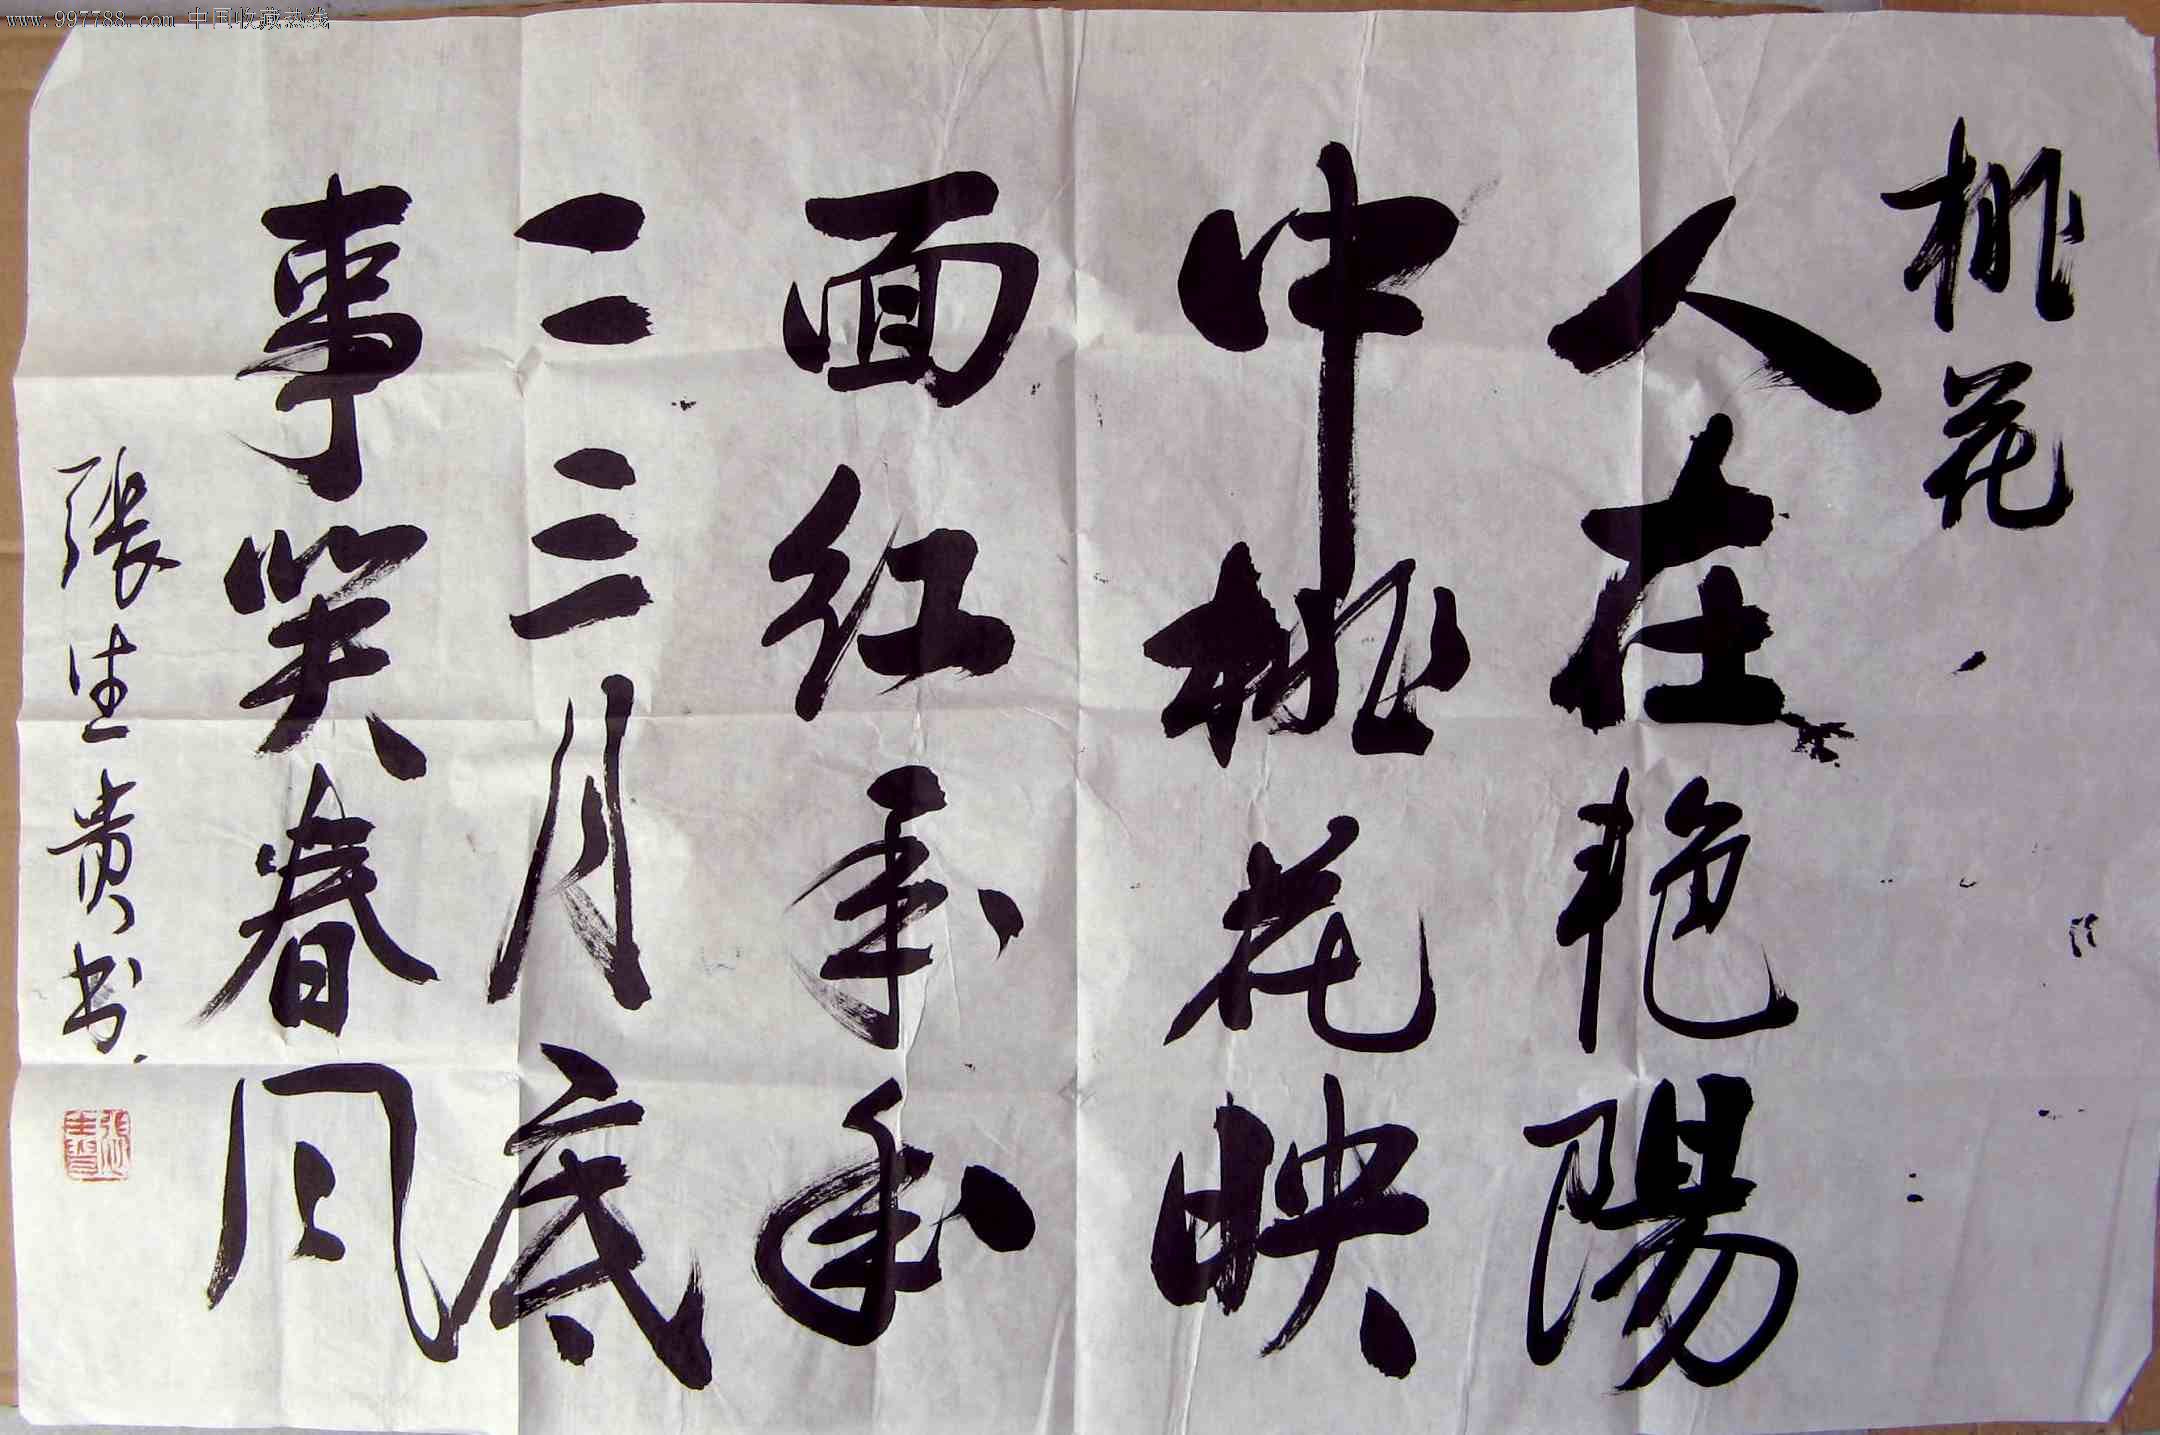 www.997788.com 中国收藏热线
桃花
人在艳陽
中桃花映
面红年年
二三月底
事笑春风
張生贵书